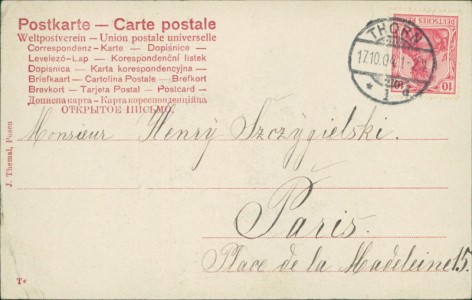 Postkarte — Carte postale
Weltpostverein — Union postale universelle
Correspondenz-Karte — Dopisnice —
Levelező-Lap — Korespondenční listek
Dopisnica — Karta korespondencyjna —
Briefkaart — Cartolina Postale — Brefkort
Brevkort — Tarjeta Postal — Postcard —
Дописна карта — Карта кореспонденційна
ОТКРЫТОЕ ПИСЬМО.
THORN
17.10.04
* 1 d
DEUTSCHES
10 10
Monsieur Henry Szczygielski.
Paris.
Place de la Madeleine 15.
J. Themal, Posen
T*